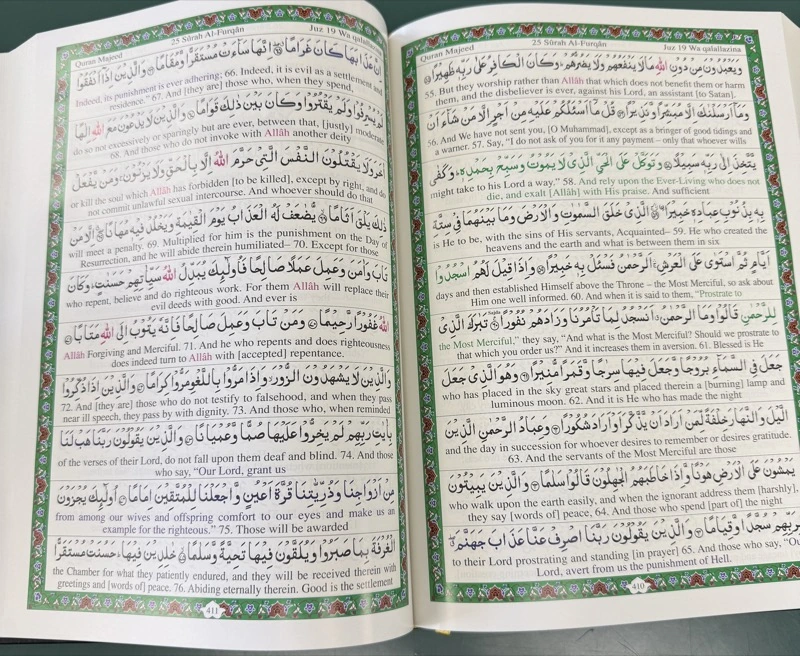 Quran Majeed 25 Sûrah Al-Furqân Juz 19 Wa qalallazina
وَيَعْبُدُوْنَ مِنْ دُوْنِ اللّٰهِ مَا لَا يَنْفَعُهُمْ وَلَا يَضُرُّهُمْ ؕ وَكَانَ الْكَافِرُ عَلٰى رَبِّهٖ ظَهِيْرًا ۝
55. But they worship rather than Allâh that which does not benefit them or harm
them, and the disbeliever is ever, against his Lord, an assistant [to Satan].
وَمَاۤ اَرْسَلْنٰكَ اِلَّا مُبَشِّرًا وَّنَذِيْرًا ۝ قُلْ مَاۤ اَسْئَلُكُمْ عَلَيْهِ مِنْ اَجْرٍ اِلَّا مَنْ شَآءَ اَنْ
56. And We have not sent you, [O Muhammad], except as a bringer of good tidings and
a warner. 57. Say, "I do not ask of you for it any payment – only that whoever wills
يَّتَّخِذَ اِلٰى رَبِّهٖ سَبِيْلًا ۝ وَتَوَكَّلْ عَلَى الْحَيِّ الَّذِيْ لَا يَمُوْتُ وَسَبِّحْ بِحَمْدِهٖ ؕ وَكَفٰى
might take to his Lord a way." 58. And rely upon the Ever-Living who does not
die, and exalt [Allâh] with His praise. And sufficient
بِهٖ بِذُنُوْبِ عِبَادِهٖ خَبِيْرًا ۝ الَّذِيْ خَلَقَ السَّمٰوٰتِ وَالْاَرْضَ وَمَا بَيْنَهُمَا فِيْ سِتَّةِ
is He to be, with the sins of His servants, Acquainted– 59. He who created the
heavens and the earth and what is between them in six
اَيَّامٍ ثُمَّ اسْتَوٰى عَلَى الْعَرْشِ ۛۚ اَلرَّحْمٰنُ فَسْئَلْ بِهٖ خَبِيْرًا ۝ وَاِذَا قِيْلَ لَهُمُ اسْجُدُوْا
days and then established Himself above the Throne – the Most Merciful, so ask about
Him one well informed. 60. And when it is said to them, "Prostrate to
لِلرَّحْمٰنِ قَالُوْا وَمَا الرَّحْمٰنُ ۗ اَنَسْجُدُ لِمَا تَأْمُرُنَا وَزَادَهُمْ نُفُوْرًا ۝ تَبٰرَكَ الَّذِيْ
the Most Merciful," they say, "And what is the Most Merciful? Should we prostrate to
that which you order us?" And it increases them in aversion. 61. Blessed is He
جَعَلَ فِي السَّمَآءِ بُرُوْجًا وَّجَعَلَ فِيْهَا سِرٰجًا وَّقَمَرًا مُّنِيْرًا ۝ وَهُوَ الَّذِيْ جَعَلَ
who has placed in the sky great stars and placed therein a [burning] lamp and
luminous moon. 62. And it is He who has made the night
الَّيْلَ وَالنَّهَارَ خِلْفَةً لِّمَنْ اَرَادَ اَنْ يَّذَّكَّرَ اَوْ اَرَادَ شُكُوْرًا ۝ وَعِبَادُ الرَّحْمٰنِ الَّذِيْنَ
and the day in succession for whoever desires to remember or desires gratitude.
63. And the servants of the Most Merciful are those
يَمْشُوْنَ عَلَى الْاَرْضِ هَوْنًا وَّاِذَا خَاطَبَهُمُ الْجٰهِلُوْنَ قَالُوْا سَلٰمًا ۝ وَالَّذِيْنَ يَبِيْتُوْنَ
who walk upon the earth easily, and when the ignorant address them [harshly],
they say [words of] peace, 64. And those who spend [part of] the night
لِرَبِّهِمْ سُجَّدًا وَّقِيَامًا ۝ وَالَّذِيْنَ يَقُوْلُوْنَ رَبَّنَا اصْرِفْ عَنَّا عَذَابَ جَهَنَّمَ ۖ
to their Lord prostrating and standing [in prayer] 65. And those who say, "Our
Lord, avert from us the punishment of Hell.
410
Quran Majeed 25 Sûrah Al-Furqân Juz 19 Wa qalallazina
اِنَّ عَذَابَهَا كَانَ غَرَامًا ۝ اِنَّهَا سَآءَتْ مُسْتَقَرًّا وَّمُقَامًا ۝ وَالَّذِيْنَ اِذَاۤ اَنْفَقُوْا
Indeed, its punishment is ever adhering; 66. Indeed, it is evil as a settlement and
residence." 67. And [they are] those who, when they spend,
لَمْ يُسْرِفُوْا وَلَمْ يَقْتُرُوْا وَكَانَ بَيْنَ ذٰلِكَ قَوَامًا ۝ وَالَّذِيْنَ لَا يَدْعُوْنَ مَعَ اللّٰهِ اِلٰهًا
do so not excessively or sparingly but are ever, between that, [justly] moderate
68. And those who do not invoke with Allâh another deity
اٰخَرَ وَلَا يَقْتُلُوْنَ النَّفْسَ الَّتِيْ حَرَّمَ اللّٰهُ اِلَّا بِالْحَقِّ وَلَا يَزْنُوْنَ ۚ وَمَنْ يَّفْعَلْ
or kill the soul which Allâh has forbidden [to be killed], except by right, and do
not commit unlawful sexual intercourse. And whoever should do that
ذٰلِكَ يَلْقَ اَثَامًا ۝ يُّضٰعَفْ لَهُ الْعَذَابُ يَوْمَ الْقِيٰمَةِ وَيَخْلُدْ فِيْهٖ مُهَانًا ۝ اِلَّا مَنْ
will meet a penalty. 69. Multiplied for him is the punishment on the Day of
Resurrection, and he will abide therein humiliated– 70. Except for those
تَابَ وَاٰمَنَ وَعَمِلَ عَمَلًا صَالِحًا فَاُولٰٓئِكَ يُبَدِّلُ اللّٰهُ سَيِّاٰتِهِمْ حَسَنٰتٍ ؕ وَكَانَ
who repent, believe and do righteous work. For them Allâh will replace their
evil deeds with good. And ever is
اللّٰهُ غَفُوْرًا رَّحِيْمًا ۝ وَمَنْ تَابَ وَعَمِلَ صَالِحًا فَاِنَّهٗ يَتُوْبُ اِلَى اللّٰهِ مَتَابًا ۝
Allâh Forgiving and Merciful. 71. And he who repents and does righteousness
does indeed turn to Allâh with [accepted] repentance.
وَالَّذِيْنَ لَا يَشْهَدُوْنَ الزُّوْرَ ۙ وَاِذَا مَرُّوْا بِاللَّغْوِ مَرُّوْا كِرَامًا ۝ وَالَّذِيْنَ اِذَا ذُكِّرُوْا
72. And [they are] those who do not testify to falsehood, and when they pass
near ill speech, they pass by with dignity. 73. And those who, when reminded
بِاٰيٰتِ رَبِّهِمْ لَمْ يَخِرُّوْا عَلَيْهَا صُمًّا وَّعُمْيَانًا ۝ وَالَّذِيْنَ يَقُوْلُوْنَ رَبَّنَا هَبْ لَنَا
of the verses of their Lord, do not fall upon them deaf and blind. 74. And those
who say, "Our Lord, grant us
مِنْ اَزْوَاجِنَا وَذُرِّيّٰتِنَا قُرَّةَ اَعْيُنٍ وَّاجْعَلْنَا لِلْمُتَّقِيْنَ اِمَامًا ۝ اُولٰٓئِكَ يُجْزَوْنَ
from among our wives and offspring comfort to our eyes and make us an
example for the righteous." 75. Those will be awarded
الْغُرْفَةَ بِمَا صَبَرُوْا وَيُلَقَّوْنَ فِيْهَا تَحِيَّةً وَّسَلٰمًا ۝ خٰلِدِيْنَ فِيْهَا ؕ حَسُنَتْ مُسْتَقَرًّا
the Chamber for what they patiently endured, and they will be received therein with
greetings and [words of] peace. 76. Abiding eternally therein. Good is the settlement
411